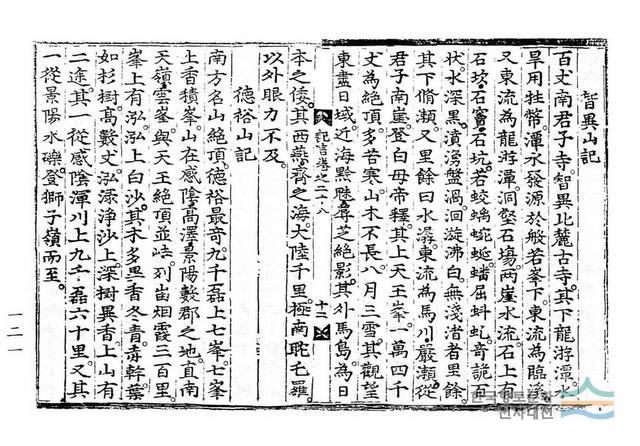 智異山記
百丈南君子寺智異北麓古寺其下龍游潭水
旱用牲幣潭水發源於般若峯下東流為臨溪
又東流為龍游潭洞壑石場兩崖水流石上有
石坎石竇石坑若蛟螭蜿蜒蟠屈蚪虬奇詭百
狀水深黑濆湧盤渦洄漩沸白無淺渚者里餘
其下脩瀨又里餘曰水潯東流為馬川嚴瀨從
君子南崖登白母帝釋其上天王峯一萬四千
丈為絶頂多苦寒山木不長八月三雪其觀望
東盡日域近海黔魅尋芝絶影其外馬島為日
記言卷之二十八 十二
本之倭其西燕齊之海大陸千里極南耽乇羅
以外眼力不及
德裕山記
南方名山絶頂德裕最奇九千磊上七峯七峯
上香積峯山在感陰高澤景陽數郡之地直南
天嶺雲峯與天王絶頂並峙列峀烟霞三百里
峯上有泓泓上白沙其木多里香冬青赤幹葉
如杉樹高數丈泓淥淨沙上深樹異香上山有
二逵其一從感陰渾川上九千磊六十里又其
一從景陽水礫登獅子嶺而至
一二一
한국향토문화
전자대전